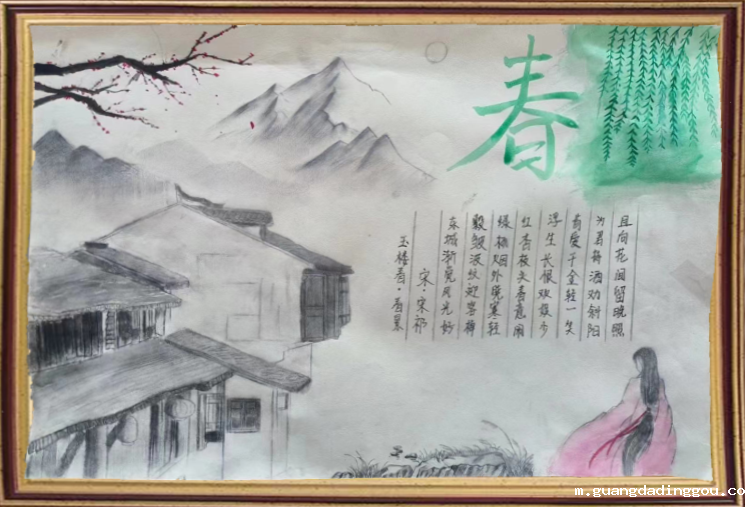 春
玉楼春·春景
宋·宋祁
东城渐觉风光好
縠皱波纹迎客棹
绿杨烟外晓寒轻
红杏枝头春意闹
浮生长恨欢娱少
肯爱千金轻一笑
为君持酒劝斜阳
且向花间留晚照
m.guangdadinggou.co